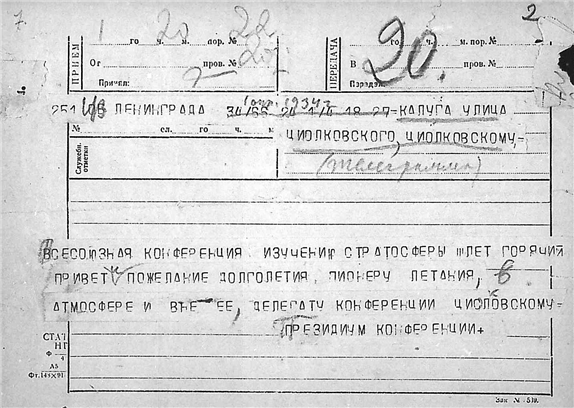 7
2
1 го 20 ч. м. пор. № 22
го ч. м. пор. №
ПРИЕМ
От пров. №
Принял:
ПЕРЕДАЧА
В пров. №
Передал:
20.
ЛЕНИНГРАДА 34/33 18 27=КАЛУГА УЛИЦА
ЦИОЛКОВСКОГО, ЦИОЛКОВСКОМУ,=
№ сл. го ч. м.
Служебн. отметки
(телеграмма)
ВСЕСОЮЗНАЯ КОНФЕРЕНЦИЯ ИЗУЧЕНИЮ СТРАТОСФЕРЫ ШЛЕТ ГОРЯЧИЙ
ПРИВЕТ ПОЖЕЛАНИЕ ДОЛГОЛЕТИЯ, ПИОНЕРУ ЛЕТАНИЯ, в
АТМОСФЕРЕ И ВНЕ ЕЕ, ДЕЛЕГАТУ КОНФЕРЕНЦИИ ЦИОЛКОВСКОМУ=
ПРЕЗИДИУМ КОНФЕРЕНЦИИ+
СТАТ
НГ
Ф
4
А5
Зак № 519.